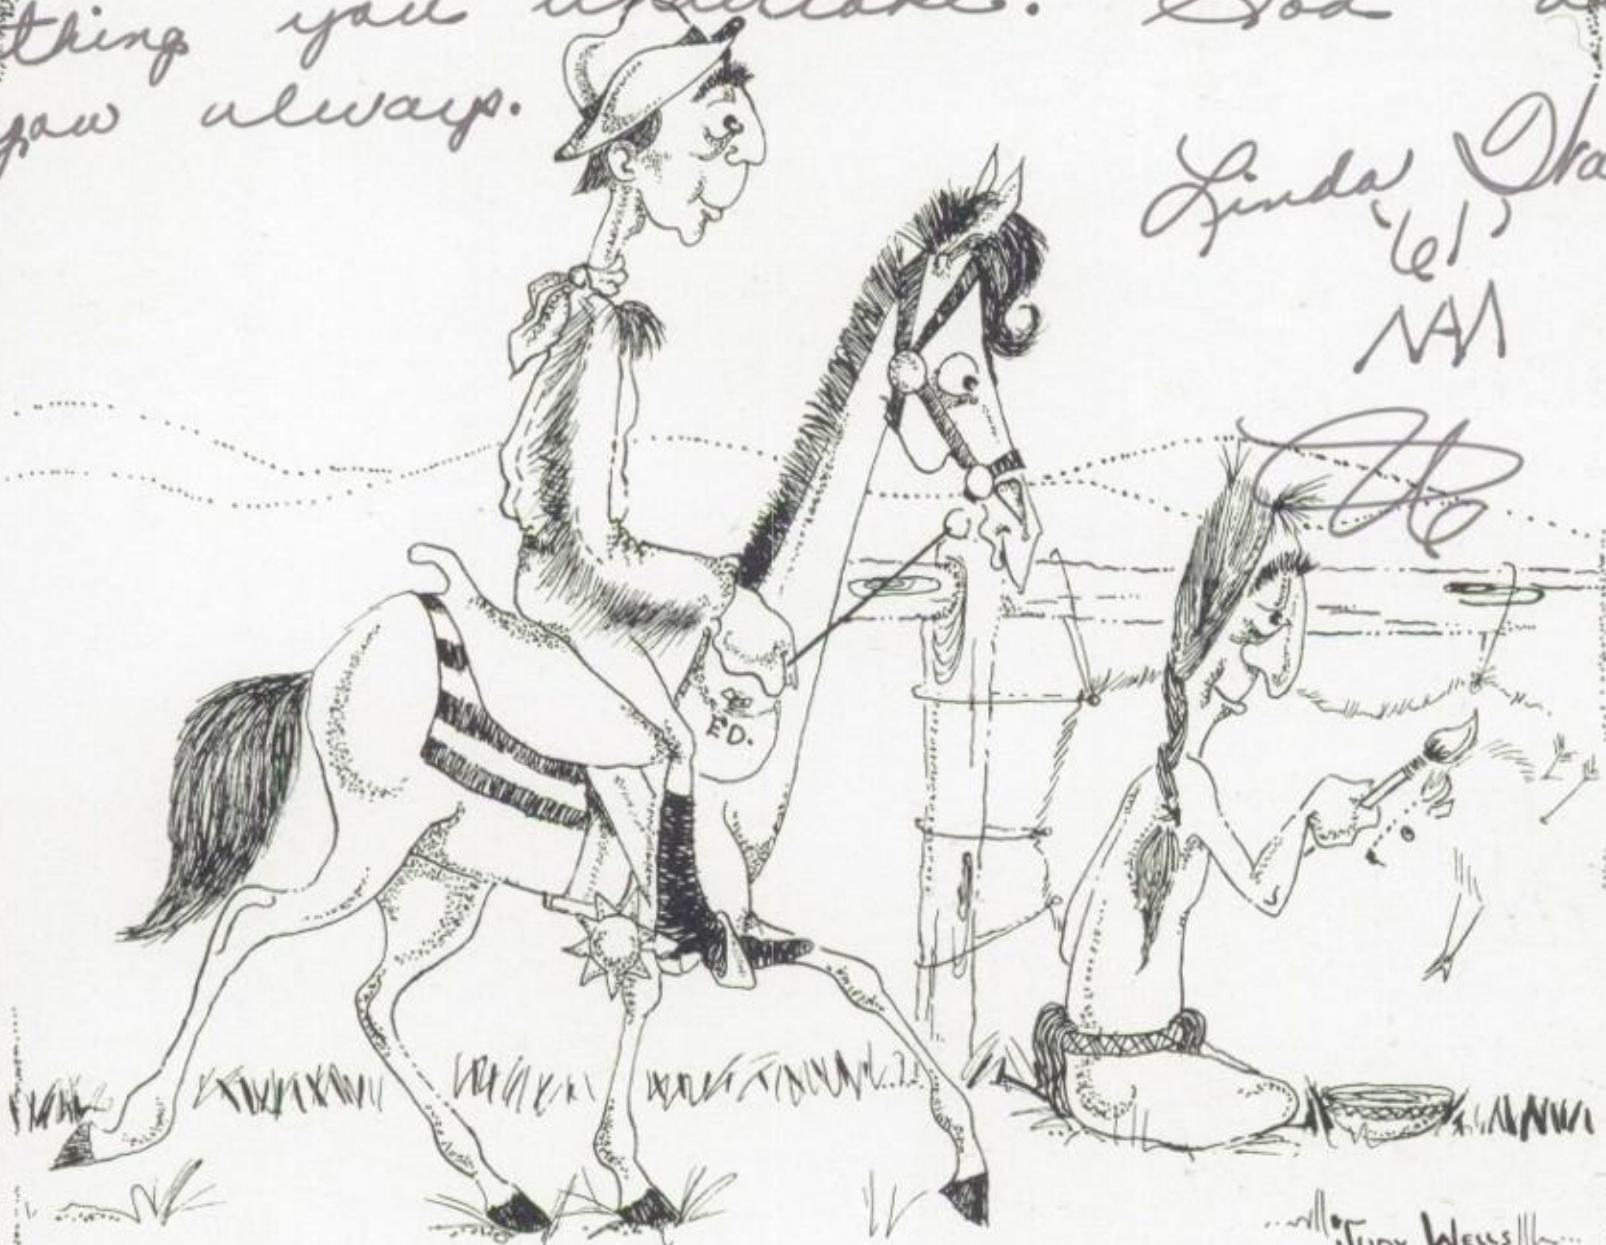 thing you undertake. God
you always.
Linda
'61'
NAN
ED.
JUDY WELLS